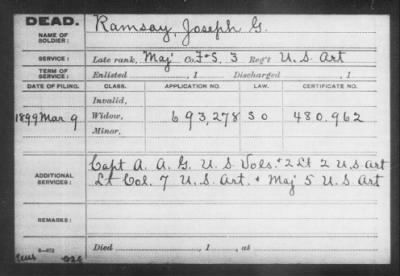 DEAD.
NAME OF SOLDIER: Ramsay, Joseph G.
SERVICE: Late rank, Maj Co. F+S, 3 Reg't U.S. Art
TERM OF SERVICE: Enlisted , 1 Discharged , 1
DATE OF FILING. CLASS. APPLICATION NO. LAW. CERTIFICATE NO.
Invalid,
1899 Mar 9 Widow, 693,278 480,962
Minor,
ADDITIONAL SERVICES: Capt A. A. G. U.S. Vols. + 2 Lt 2 U.S Art
Lt Col. 7 U.S. Art. + Maj 5 U.S Art
REMARKS:
Died , 1 , at